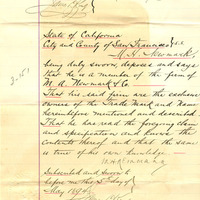 State of California
City and County of San Francisco } S.S.
M. H. Newmark,
being duly sworn, deposes and says
that he is a member of the firm of
M. A. Newmark & Co.
That his said firm are the exclusive
owners of the Trade Mark and Name
hereinbefore mentioned and described.
That he has read the foregoing claim
and specification and knows the
contents thereof and that the same
is true of his own knowledge.
M. H. Newmark
Subscribed and sworn to
before me this day of
May 1894.